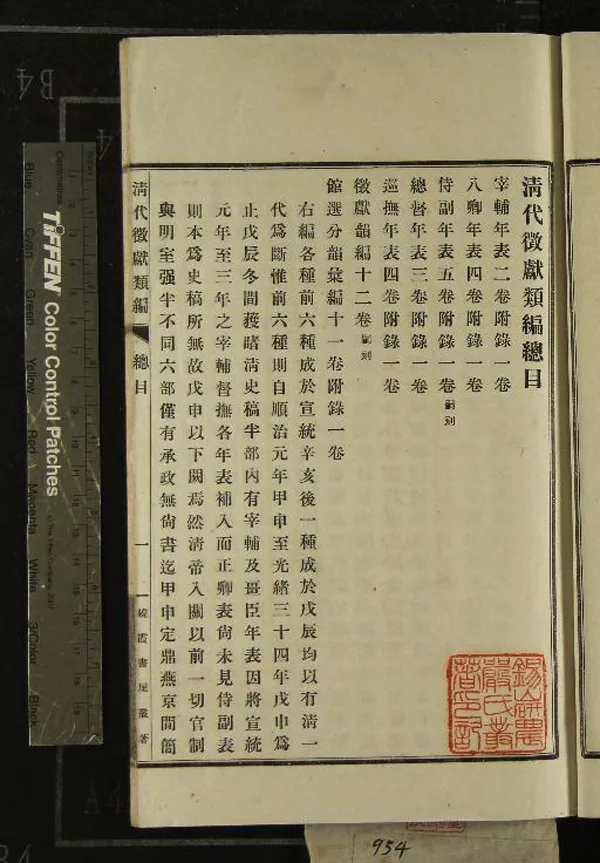 清代徵獻類編總目
宰輔年表二卷附錄一卷
八卿年表四卷附錄一卷
侍副年表五卷附錄一卷嗣刻
總督年表三卷附錄一卷
巡撫年表四卷附錄一卷
徵獻韻編十二卷嗣刻
館選分韻彙編十一卷附錄一卷
右編各種前六種成於宣統辛亥後一種成於戊辰均以有清一
代爲斷惟前六種則自順治元年甲申至光緒三十四年戊申爲
止戊辰冬間獲睹清史稿半部內有宰輔及畺臣年表因將宣統
元年至三年之宰輔督撫各年表補入而正卿表尙未見侍副表
則本爲史稿所無故戊申以下闕焉然清帝入關以前一切官制
與明室强半不同六部僅有承政無尙書迄甲申定鼎燕京間簡
清代徵獻類編
總目
一
曉霞書屋叢著
錫山農
嚴氏叢
著印記
TIFFEN Color Control Patches
© The Tiffen Company, 2007
Centimetres
Inches
Blue
Cyan
Green
Yellow
Red
Magenta
White
3/Color
Black
B4
A4
954